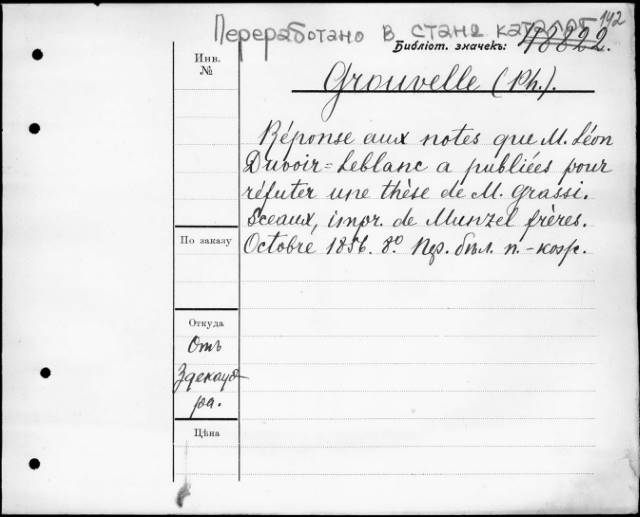 142
Переработано в стана каталог
Библіот. значекъ: 48822.
Инв.
№
Grouvelle (Ph.).
Réponse aux notes que M. Léon
Duvoir=Leblanc a publiées pour
réfuter une thèse de M. Grassi.
Sceaux, impr. de Munzel frères.
Octobre 1856. 8º
По заказу
Откуда
Отъ
Здекауэ-
ра.
Цѣна